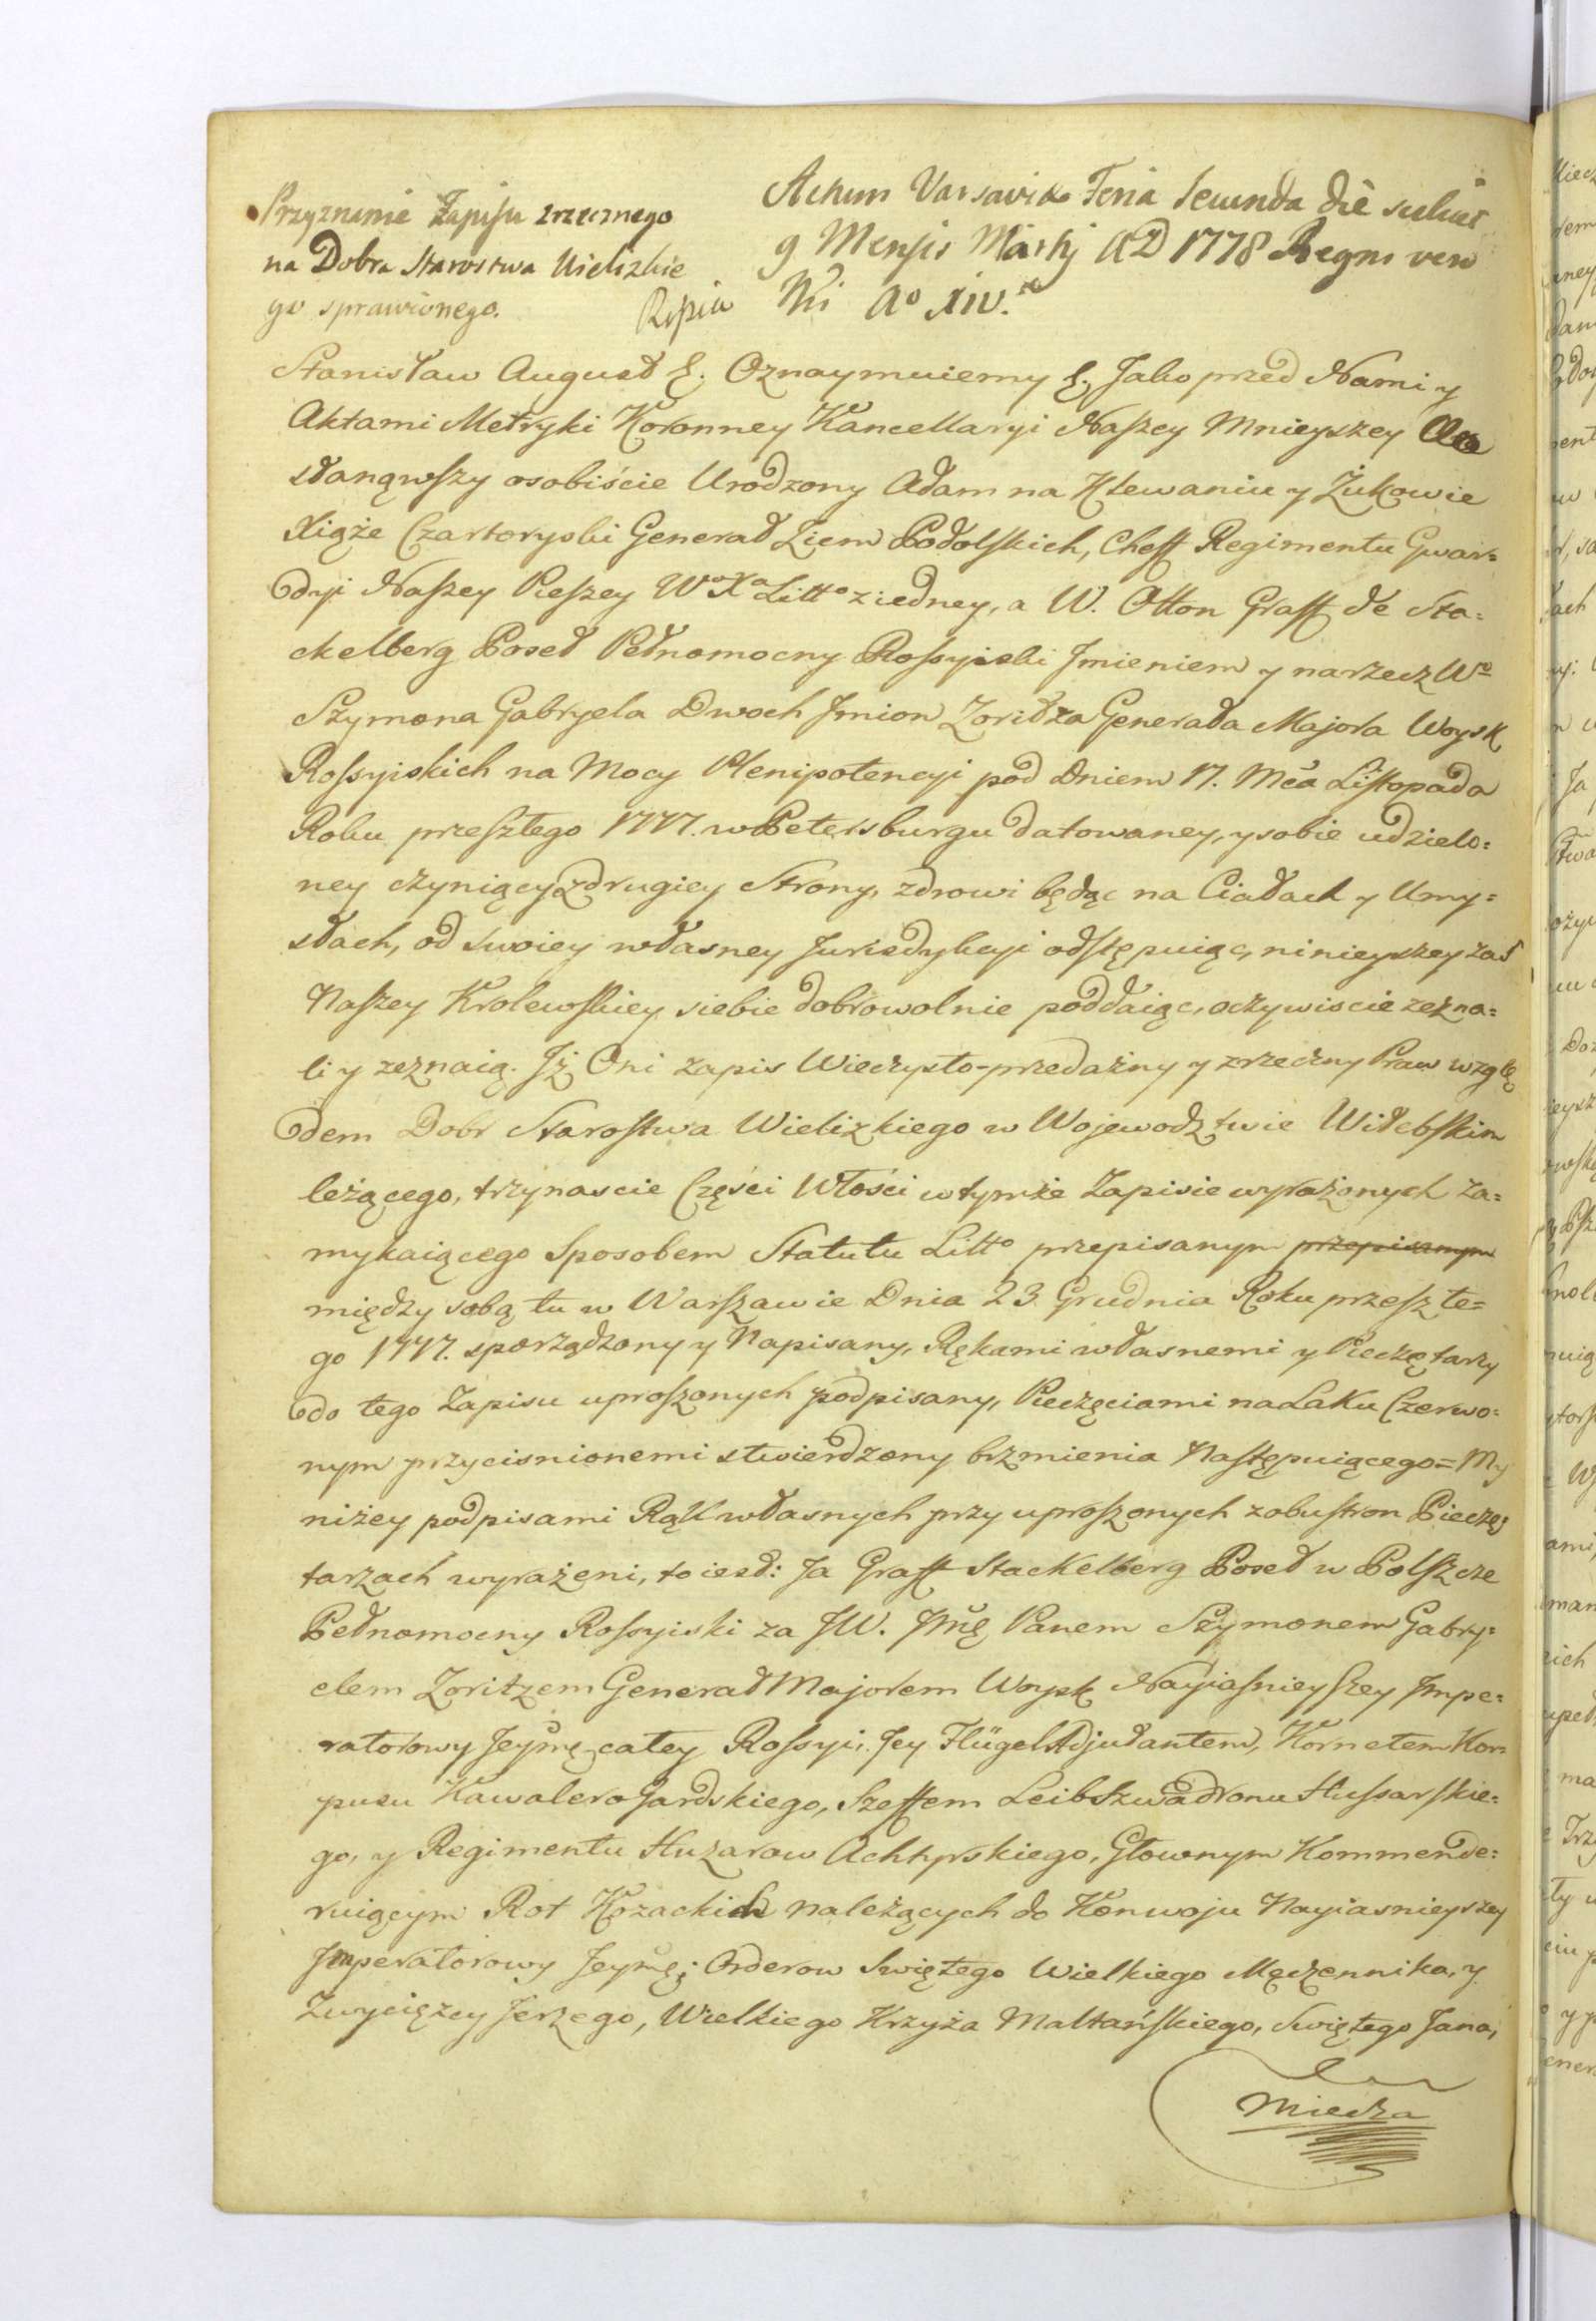 Przyznanie Zapisu zrzecznego
na Dobra Starostwa Wieliskie
go sprawionego.
Actum Varsaviæ Feria Secunda die scilicet
9 Mensis Martij AD 1778 Regni vero
Nri Ao XIV.
Stanisław August &. Oznaymuiemy &. Jako przed Nami y
Aktami Metryki Koronney Kancellaryi Naszey Mnieyszey
stanąwszy osobiście Urodzony Adam na Klewaniu y Żukowie
Xiąże Czartoryski Generał Ziem Podolskich, Cheff Regimentu Gwar=
dyi Naszey Pieszey Wo Xa Litto z iedney, a W. Otton Graff de Sta=
ckelberg Poseł Pełnomocny Rossyiski Imieniem y na rzecz Wo
Szymona Gabryela Dwoch Imion Zoritza Generała Majora Woysk
Rossyiskich na Mocy Plenipotencyi pod Dniem 17. Mca Listopada
Roku przeszłego 1777. w Petersburgu datowaney, y sobie udzielo=
ney czyniący z drugiey Strony, zdrowi będąc na Ciałach y Umy=
słach, od swoiey własney Jurisdykcyi odstępuiąc, ninieyszey zaś
Naszey Krolewskiey siebie dobrowolnie poddaiąc, oczywiscie zezna=
li y zeznaią. Iż Oni zapis Wieczysto-przedażny y zrzeczny Praw wzglę
dem Dobr Starostwa Wielizkiego w Wojewodztwie Witebskim
leżącego, trzynascie Części Włości w tymże Zapisie wyrażonych za=
mykaiącego Sposobem Statutu Litto przepisanym przepisanym
między sobą tu w Warszawie Dnia 23 Grudnia Roku przeszłe=
go 1777. sporządzony y Napisany, Rękami własnemi y Pieczętarzy
do tego Zapisu uproszonych podpisany, Pieczęciami na Laku Czerwo=
nym przycisnionemi stwierdzony brzmienia Następuiącego= My
niżey podpisami Rąk własnych przy uproszonych z obustron Pieczę
tarzach wyrażeni, to iest: Ja Graff Stackelberg Poseł w Polszcze
Pełnomocny Rossyiski za JW. Jmę Panem Szymonem Gabry=
elem Zoritzem Generał Majorem Woysk Nayiasnieyszey Impe=
ratorowy Jeymę całey Rossyi, Jey Flügel Adjudantem, Kornetem Kor=
pusu Kawalerogardskiego, Szeffem Leib Szwadronu Hussarskie=
go, y Regimentu Huzarow Achtyrskiego, Głownym Kommende=
ruiącym Rot Kozackich należących do Konwoju Nayiasnieyszey
Imperatorowy Jeymę; Orderow Swiętego Wielkiego Męczennika, y
Zwycięzcy Jerzego, Wielkiego Krzyża Maltańskiego, Swiętego Jana,
Miecza